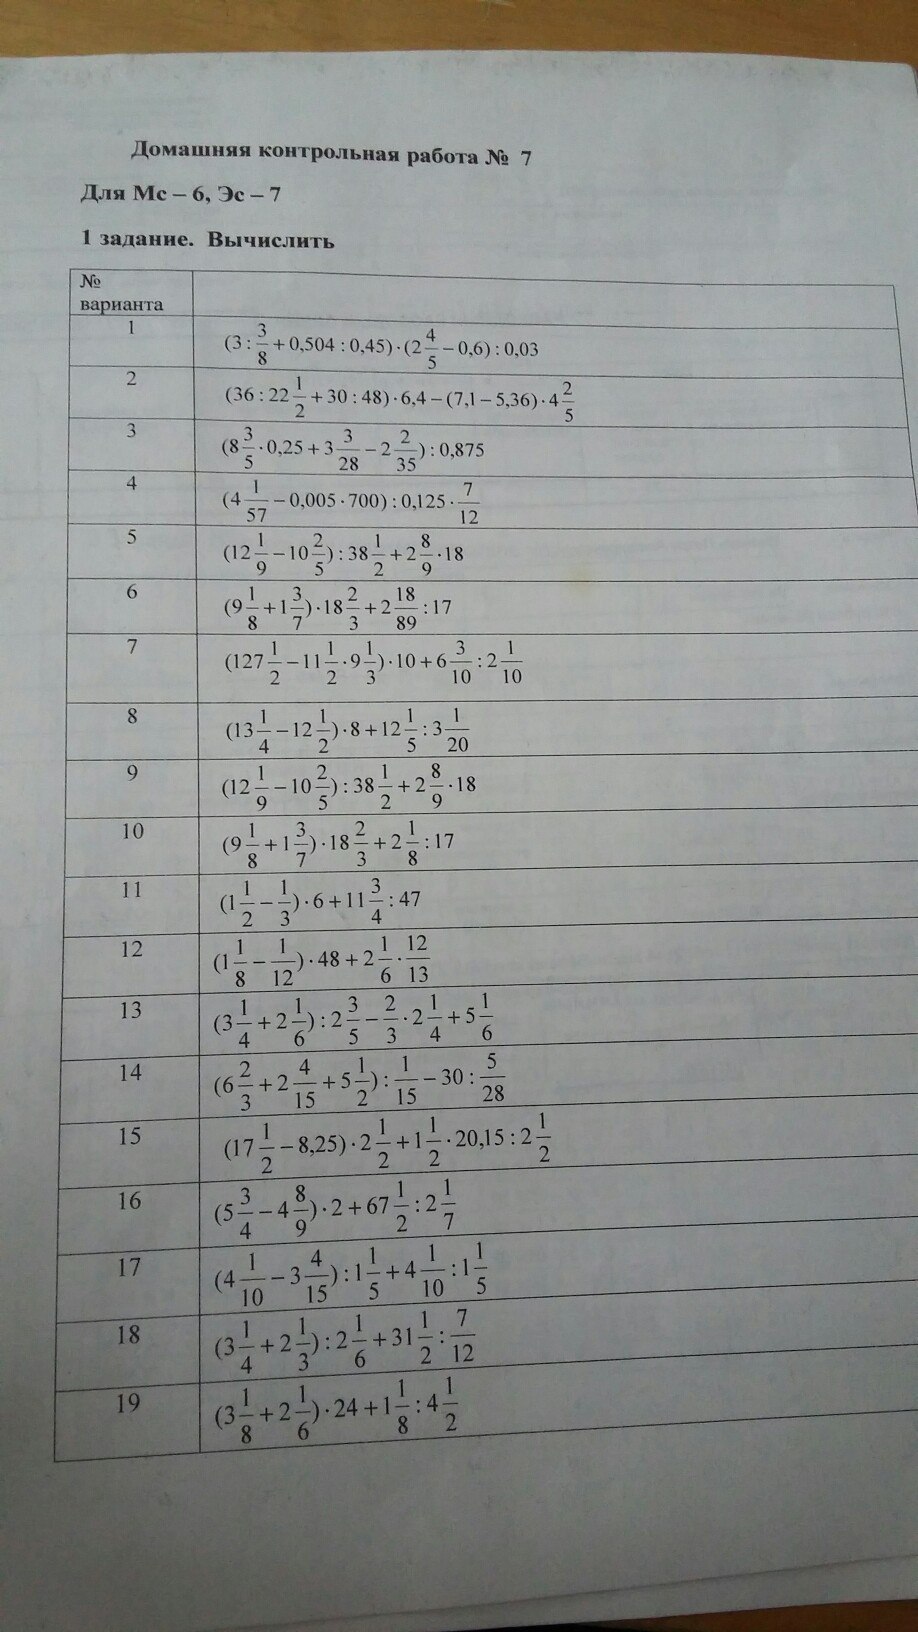 Домашняя контрольная работа № 7
Для Мс – 6, Эс – 7
1 задание. Вычислить
№
варианта
1 (3 : 3/8 + 0,504 : 0,45) · (2 4/5 − 0,6) : 0,03
2 (36 : 22 1/2 + 30 : 48) · 6,4 − (7,1 − 5,36) · 4 2/5
3 (8 3/5 · 0,25 + 3 3/28 − 2 2/35) : 0,875
4 (4 1/57 − 0,005 · 700) : 0,125 · 7/12
5 (12 1/9 − 10 2/5) : 38 1/2 + 2 8/9 · 18
6 (9 1/8 + 1 3/7) · 18 2/3 + 2 18/89 : 17
7 (127 1/2 − 11 1/2 · 9 1/3) · 10 + 6 3/10 : 2 1/10
8 (13 1/4 − 12 1/2) · 8 + 12 1/5 : 3 1/20
9 (12 1/9 − 10 2/5) : 38 1/2 + 2 8/9 · 18
10 (9 1/8 + 1 3/7) · 18 2/3 + 2 1/8 : 17
11 (1 1/2 − 1/3) · 6 + 11 3/4 : 47
12 (1 1/8 − 1/12) · 48 + 2 1/6 · 12/13
13 (3 1/4 + 2 1/6) : 2 3/5 − 2/3 · 2 1/4 + 5 1/6
14 (6 2/3 + 2 4/15 + 5 1/2) : 1/15 − 30 : 5/28
15 (17 1/2 − 8,25) · 2 1/2 + 1 1/2 · 20,15 : 2 1/2
16 (5 3/4 − 4 8/9) · 2 + 67 1/2 : 2 1/7
17 (4 1/10 − 3 4/15) : 1 1/5 + 4 1/10 : 1 1/5
18 (3 1/4 + 2 1/3) : 2 1/6 + 31 1/2 : 7/12
19 (3 1/8 + 2 1/6) · 24 + 1 1/8 : 4 1/2